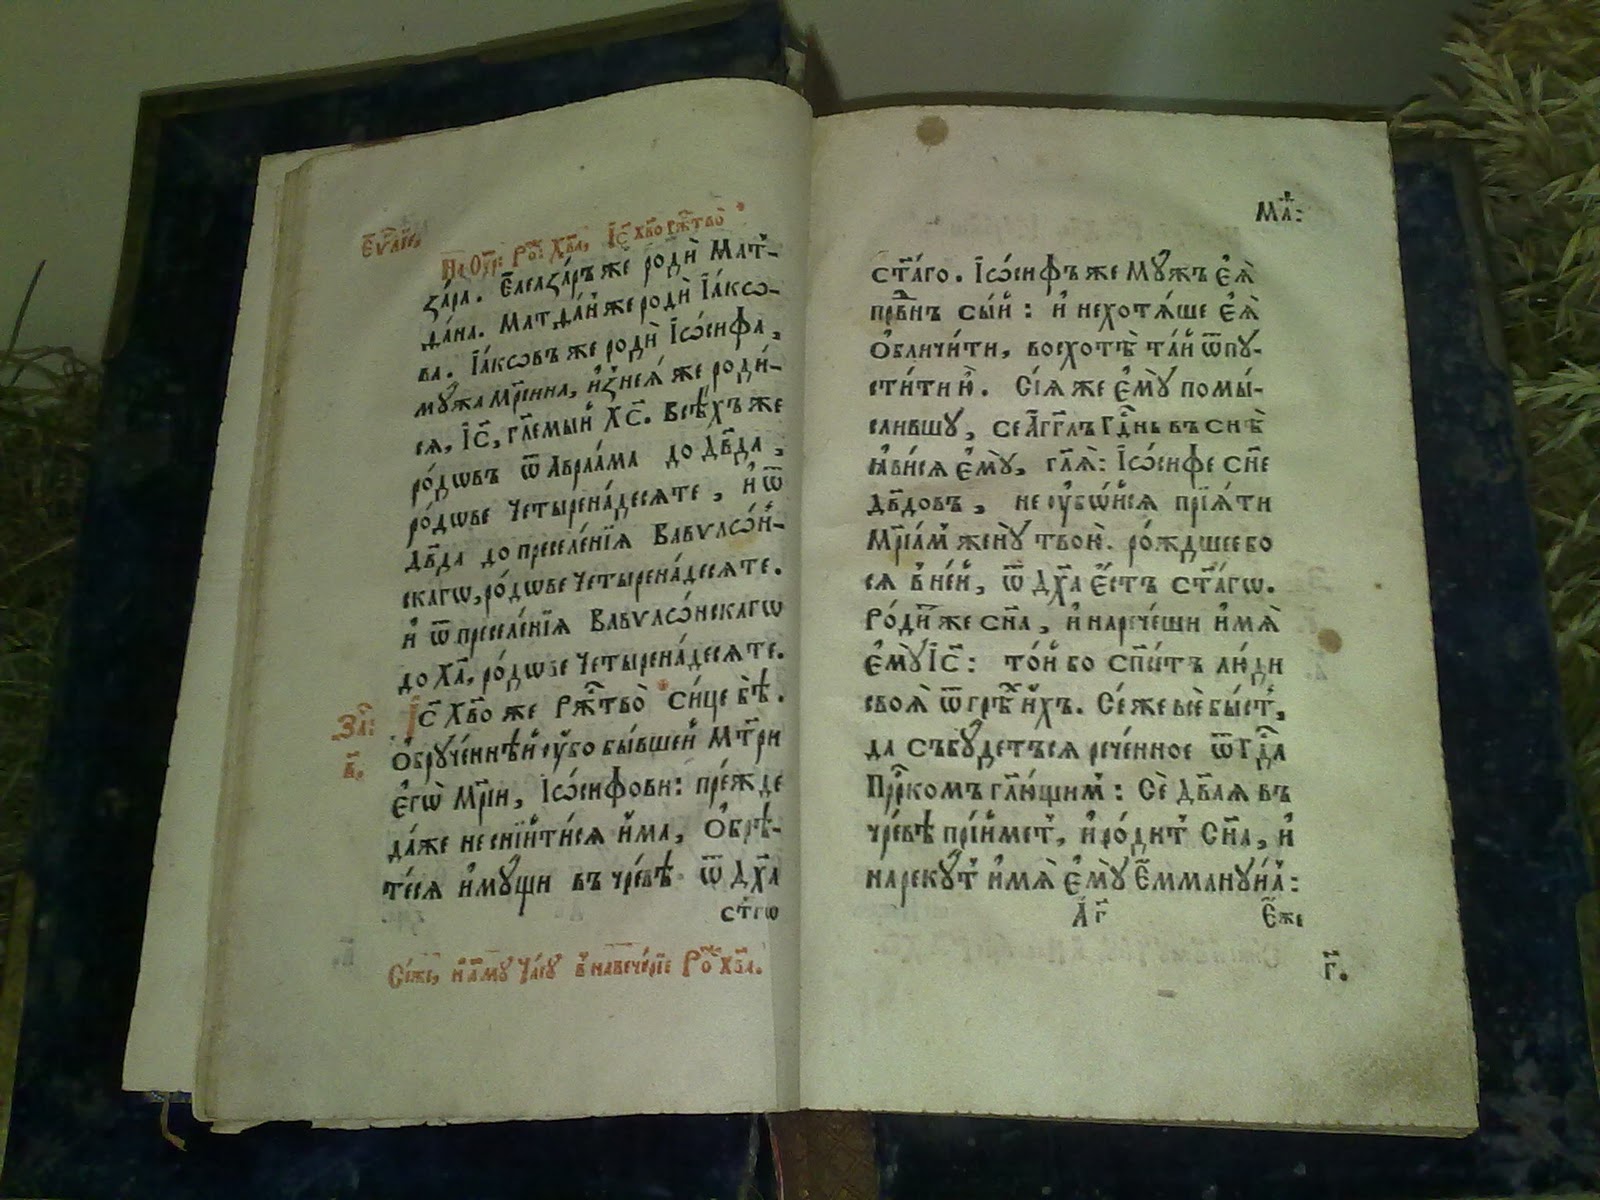 Є҆ѵⷢ҇лїе,
На Оу҆́тр: Рⷭ҇о: Хв҃а, І҆с҃ хв҃о рж҃тво̀
за́ра. Є҆леаза́ръ же родѝ Мат-
да́на. Матда́н же родѝ І҆а́кѡ-
ва. І҆а́кѡвъ же родѝ І҆ѡ́сифа,
мꙋ́жа Мр҃іина, и҆з̾ нея́ же роди́-
ся, І҆с҃, гл҃емый Хс҃. Всѣ́хъ же
ро́дѡвъ ѿ Авраа́ма до Дв҃да,
ро́дѡве четыренадесяте, и҆ ѿ
Дв҃да до преселе́нїѧ Вавѵлѡ́н-
скагѡ, ро́дѡве четырена́десѧте.
и҆ ѿ преселе́нїѧ Вавѵлѡ́нскагѡ
до Ха҃, ро́дѡве четырена́десѧте.
За҃:
І҆с҃ Хв҃о же Рж҃тво̀ си́це бѣ̀.
в҃.
Ѻ҆брꙋче́ннѣй оу҆́бо бы́вшей Мт҃ри
є҆гѡ̀ Мр҃іи, І҆ѡ́сифови: пре́жде
да́же не сни́тисѧ и҆́ма, Ѻ҆брѣ́-
тесѧ и҆мꙋ́щи въ чре́вѣ ѿ Дх҃а
ст҃гѡ
Сїѐже, и҆ а҃мꙋ Часꙋ̀ в̾ навече́рїе Рⷭ҇о Хв҃а.
Мⷴ҇а:
ст҃а́го. І҆ѡ́сифъ же мꙋ́жъ є҆ѧ̀
прв҃нъ сы́й: и҆ не хотѧ́ше є҆ѧ̀
ѻ҆бличи́ти, восхотѣ̀ та́й ѿпꙋ-
сти́ти ю҆̀. Сїѧ́ же є҆мꙋ̀ помы́-
слившꙋ, се А҆́гг҃лъ Гд҇нь въ снѣ̀
ꙗ҆ви́сѧ є҆мꙋ̀, гл҃ѧ: І҆ѡ́сифе сн҃е
Дв҃довъ, не оу҆бо́йсѧ прїѧ́ти
Мр҃іа́м женꙋ̀ твою̀. ро́ждшеебо
сѧ в̾ не́й, ѿ Дх҃а є҆́стъ ст҃а́гѡ.
Роди́т же сн҃а, и҆ нарече́ши и҆́мѧ
є҆мꙋ̀ І҆с҃: то́й бо сп҃сетъ лю́ди
своѧ̀ ѿ грѣ̑хъ и҆́хъ. Се́ же всѐ бы́ст,
да съ бꙋ́детъсѧ рече́нное ѿ Гд҇а
Прⷪ҇комъ гл҃ющим: Сѐ дв҃аѧ въ
чре́вѣ прїи́мет, и҆ ро́дит Сн҃а, и҆
нарекꙋ́т и҆́мѧ є҆мꙋ̀ Є҆ммануи́л:
А҃г҃
Є҆́же
г҃.